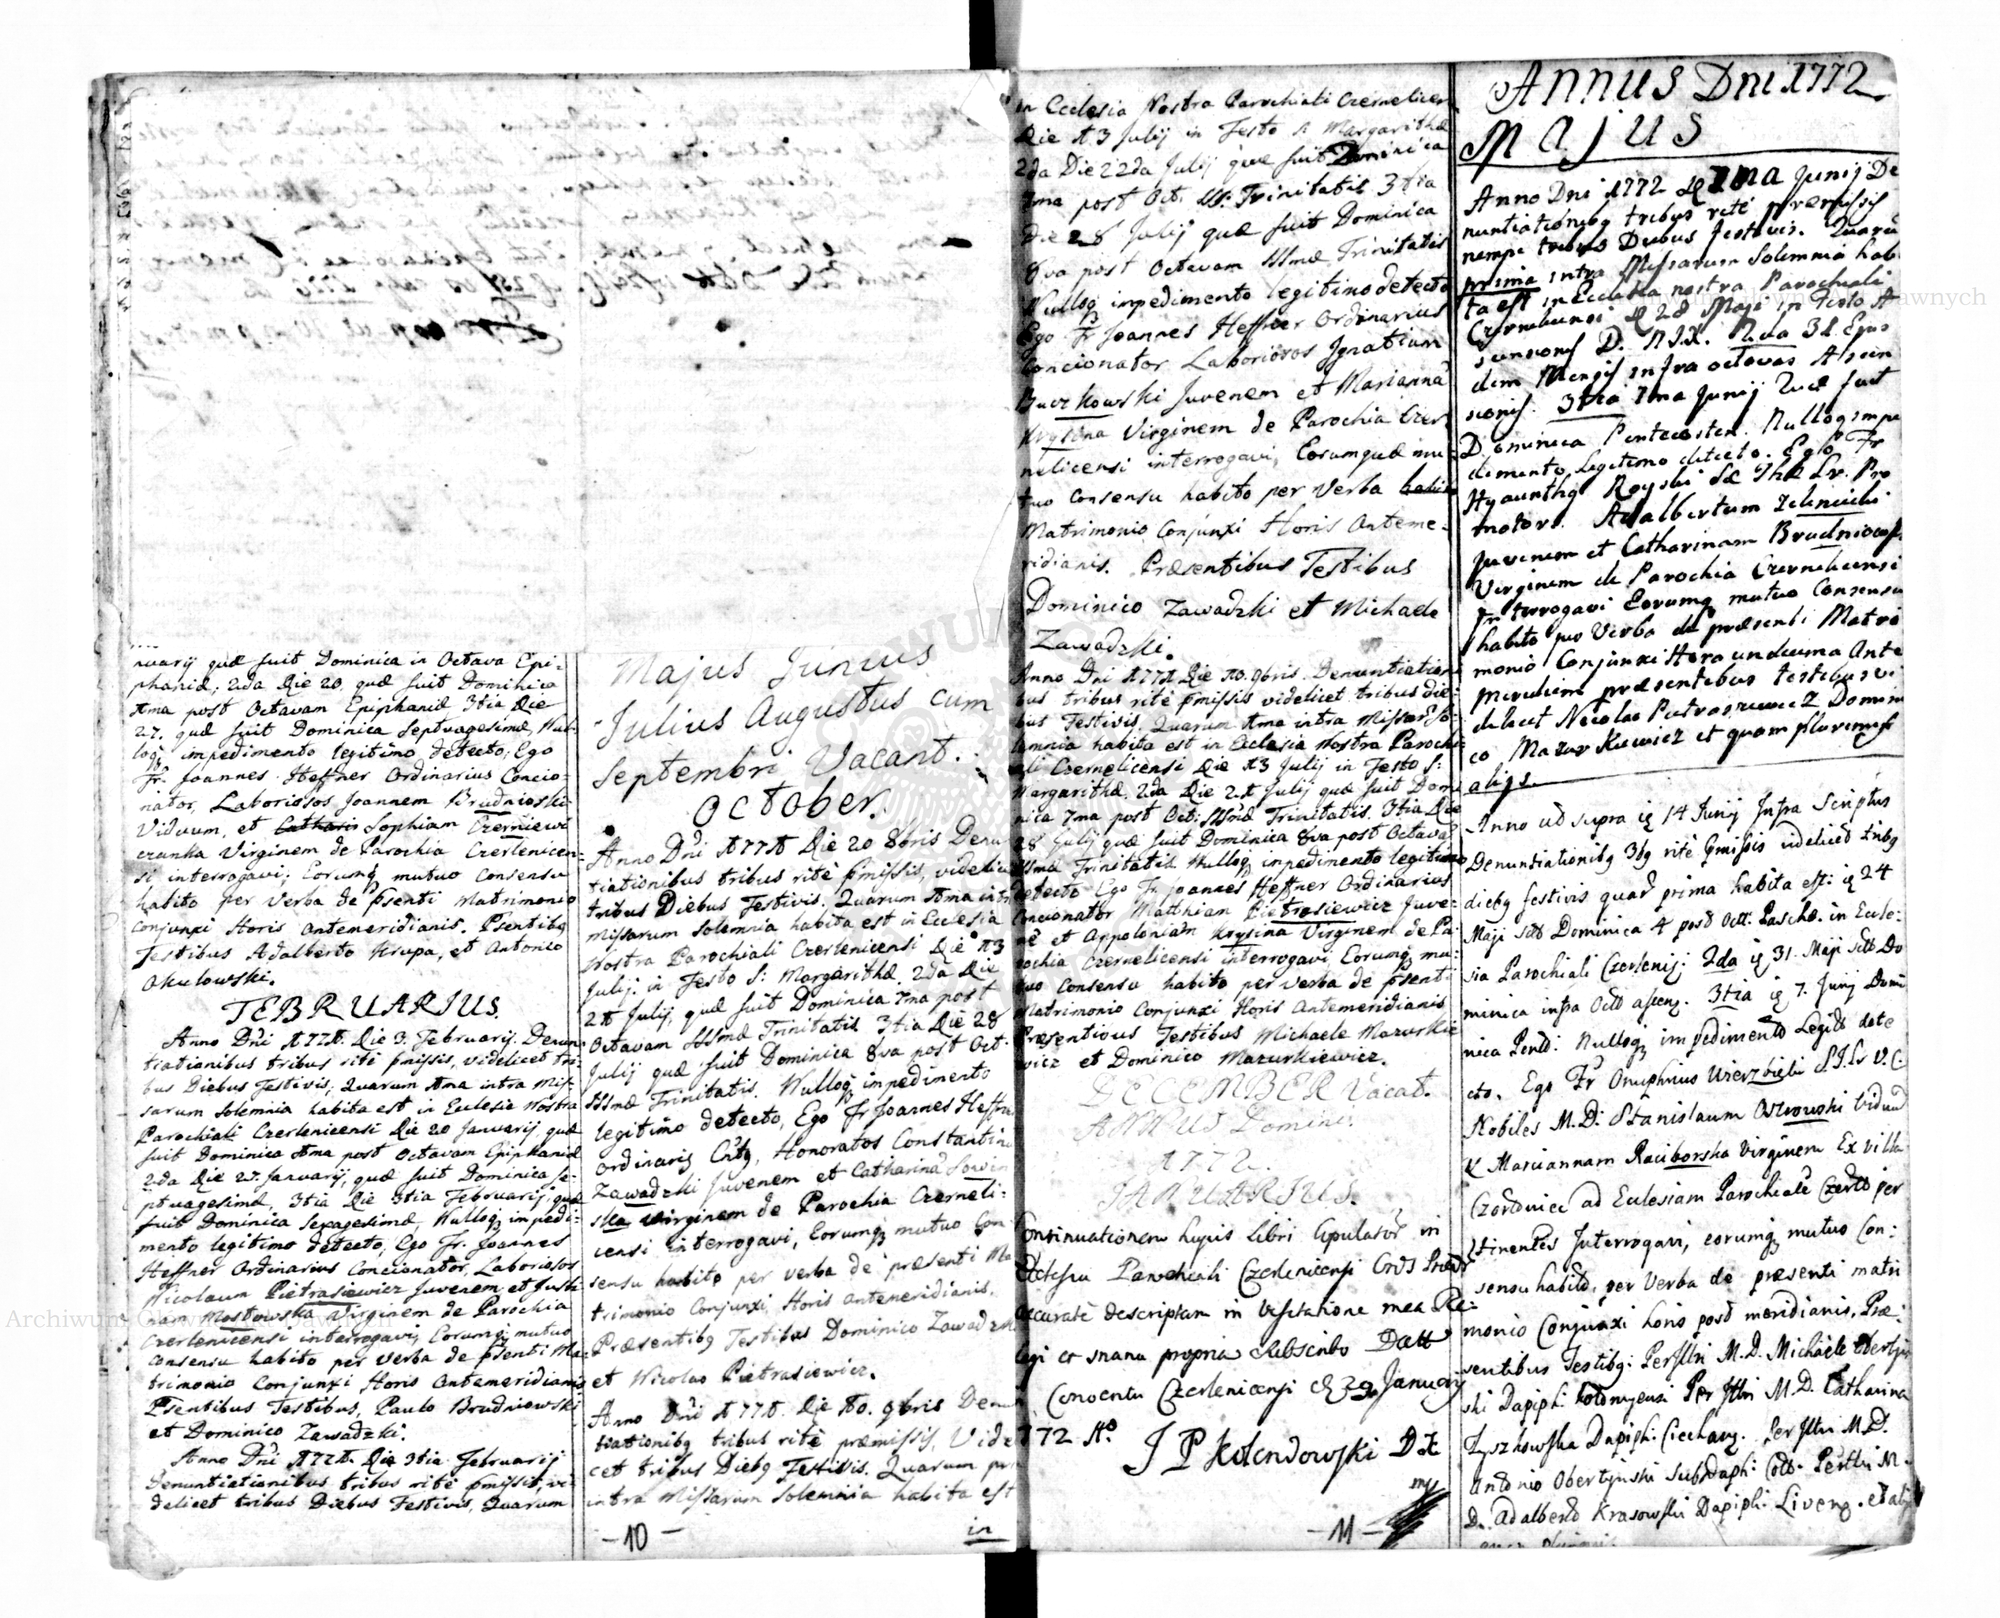 nuarij quæ fuit Dominica in Octava Epi-
phaniæ; 2da Die 20. quæ fuit Dominica
Ama post Octavam Epiphaniæ 3tia Die
27. quæ fuit Dominica Septuagesimæ, Nul-
loq impedimento legitimo detecto; Ego
Fr. Joannes Heffner Ordinarius Concio-
nator, Laboriosos Joannem Brudnioski
Viduum, et Catharin Sophiam Czerniewi
czanka Virginem de Parochia Czerlenicen-
si interrogavi; Eorumq mutuo Consensu
habito per Verba de Psenti Matrimonio
Conjunxi Horis Antemeridianis. Psentibq
Testibus Adalberto Krupa, et Antonio
Okulowski.
FEBRUARIUS.
Anno Dni 1771. Die 3. Februarij. Denun
tiationibus tribus ritè Pmissis, videlicet tri-
bus Diebus Festivis; Quarum Ama intra Mis-
sarum Solemnia habita est in Ecclesia Nostra
Parochiali Czerlenicensi Die 20 Januarij quæ
fuit Dominica Ama post Octavam Epiphaniæ
2da Die 27. Januarij, quæ fuit Dominica Se-
ptuagesimæ. 3tia Die 3tia Februarij, quæ
fuit Dominica Sexagesimæ, Nulloq impedi-
mento legitimo detecto; Ego Fr. Joannes
Heffner Ordinarius Concionator, Laboriosos
Nicolaum Pietrasiewicz Juvenem et Justi
nam Mostowska Virginem de Parochia
Czerlenicensi interrogavi, Eorumq mutuo
Consensu habito per Verba de Psenti Ma-
trimonio Conjunxi Horis Antemeridianis
Psentibus Testibus, Paulo Brudniowski
et Dominico Zawadzki.
Anno Dni 1771. Die 3tia Februarij
Denuntiationibus tribus ritè Pmissis, vi-
delicet tribus Diebus Festivis, Quarum
Majus Junius
Julius Augustus cum
Septembri Vacant.
October.
Anno Dni 1771 Die 20 8bris Denu
tiationibus tribus ritè Pmissis, videlicet
tribus Diebus Festivis. Quarum Ama intra
Missarum Solemnia habita est in Ecclesia
Nostra Parochiali Czerlenicensi Die 13
Julij. in Festo S: Margarithæ. 2da Die
21 Julij, quæ fuit Dominica 7ma post
Octavam SSmæ Trinitatis 3tia Die 28
Julij quæ fuit Dominica 8va post Oct:
SSmæ Trinitatis. Nulloq impedimento
legitimo detecto, Ego Fr Joannes Heffner
Ordinarij Cntq, Honoratos Constantinu
Zawadzki Juvenem et Catharinã Sowin
ska Virginem de Parochia Czerneli-
censi interrogavi, Eorumq mutuo Con
sensu habito per verba de præsenti Ma
trimonio Conjunxi, Horis Antemeridianis.
Præsentibq Testibus Dominico Zawadzki
et Nicolao Pietrasiewicz.
Anno Dni 1771. Die 10. 9bris Denun
tiationibq tribus ritè præmissis, Vide
cet tribus Diebq Festivis. Quarum pri
intra Missarum Solemnia habita est
-10-
in
in Ecclesia Nostra Parochiali Czernelicen
Die 13 Julij in Festo S Margarithæ
2da Die 22da Julij quæ fuit Dominica
7ma post Oct. SS: Trinitatis 3tia
Die 28 Julij quæ fuit Dominica
8va post Octavam SSmæ Trinitatis
Nulloq impedimento legitimo detecto
Ego Fr Joannes Heffner Ordinarius
Concionator Laboriosos Ignatium
Buczkowski Juvenem et Mariannã
Krysina Virginem de Parochia Czer
nelicensi interrogavi, Eorumquæ mu-
tuo Consensu habito per Verba habito
Matrimonio Conjunxi Horis Anteme-
ridianis. Præsentibus Testibus
Dominico Zawadzki et Michaele
Zawadzki.
Anno Dni 1771 Die 10. 9bris. Denuntiation
bus tribus ritè Pmissis videlicet tribus die-
bus Festivis, Quarum Ama intra Missar So-
lemnia habita est in Ecclesia Nostra Parochi-
ali Czernelicensi Die 13 Julij in Festo S:
Margarithæ. 2da Die 21 Julij quæ fuit Domi
nica 7ma post Oct: SSmæ Trinitatis. 3tia Die
28 Julij quæ fuit Dominica 8va post Octavã
SSmæ Trinitatis Nulloq impedimento legitimo
detecto Ego Fr Joannes Heffner Ordinarius
Concionator Matthiam Pietrasiewicz Juve-
nẽ et Appoloniam Krysina Virginem de Pa-
rochia Czernelicensi interrogavi, Eorumq mu-
tuo Consensu habito per Verba de Psenti
Matrimonio Conjunxi Horis Antemeridianis
Præsentibus Testibus Michaele Mazurkie
wicz et Dominico Mazurkiewicz.
DECEMBER Vacat.
ANNUS Domini.
1772.
JANUARIUS.
Continuationem hujus Libri Copulator in
Ecclesia Parochiali Czerlenicensi Ord Præd
accuratè descriptam in Visitatione mea Re-
legi et manu propria Subscribo Datt
Conventu Czerlenicensi 29 January
772 Ao
J P Kolendowski
mp
-11-
Annus Dni 1772
Majus
Anno Dni 1772 7ma Junij De
nuntiationibq tribus ritè præmissis
nempe tribus Diebus festivis. Quarũ
prima intra Missarum Solemnia hab
ta est in Ecclesia nostra Parochiali
Czernelicensi 28 Maji in Festo A
scensionis D. N. I. X. 2da 31 Ejus
dem Mensis infra octavas Ascen
sionis. 3tia 7ma Junij Quæ fuit
Dominica Pentecostes. Nulloq impe
dimento legitimo detecto. Ego Fr
Hyacinthq Royski Promotor. Adalbertum Zeleniecki
Juvenem et Catharinam Brudniowsk
Virginem de Parochia Czernelicensi
Interrogavi Eorumq mutuo Consensu
habito per Verba de præsenti Matri
monio Conjunxi Hora undecima Ante
meridiem præsentibus testibus vi
delicet Nicolao Pietrasziewicz Domini
co Mazurkiewicz et quam plurimis
alijs.
Anno ud supra 14 Junij Infra Scriptus
Denuntiationibq 3bq ritè Pmissis videlicet tribq
diebq festivis quar prima habita est: 24
Maji Dominica 4 post Oct: Pasche. in Eccle-
sia Parochiali Czerlenicj: 2da 31. Maji Do
minica infra Oct ascenq. 3tia 7. Junij Domi
nica Pent: Nulloq impedimento Legit dete
cto. Ego Fr Onuphrius Wierzbicki
Nobiles M. D: Stanislaum Ostrowski Viduũ
& Mariannam Raciborska Virginem Ex villa
ad Ecclesiam Parochialẽ per
tinentes Interrogavi, eorumq mutuo Con-
sensu habito, per Verba de præsenti matri
monio Conjunxi horis post meridianis. Præ-
sentibus Testibq: M. D. Michaele Obertyn
ski Dapiph: Kolomyensi M. D. Catharina
Dapiph: M. D.
Antonio Obertynski
D. adalberto Krasowski Dapiph: Livenq. et alij